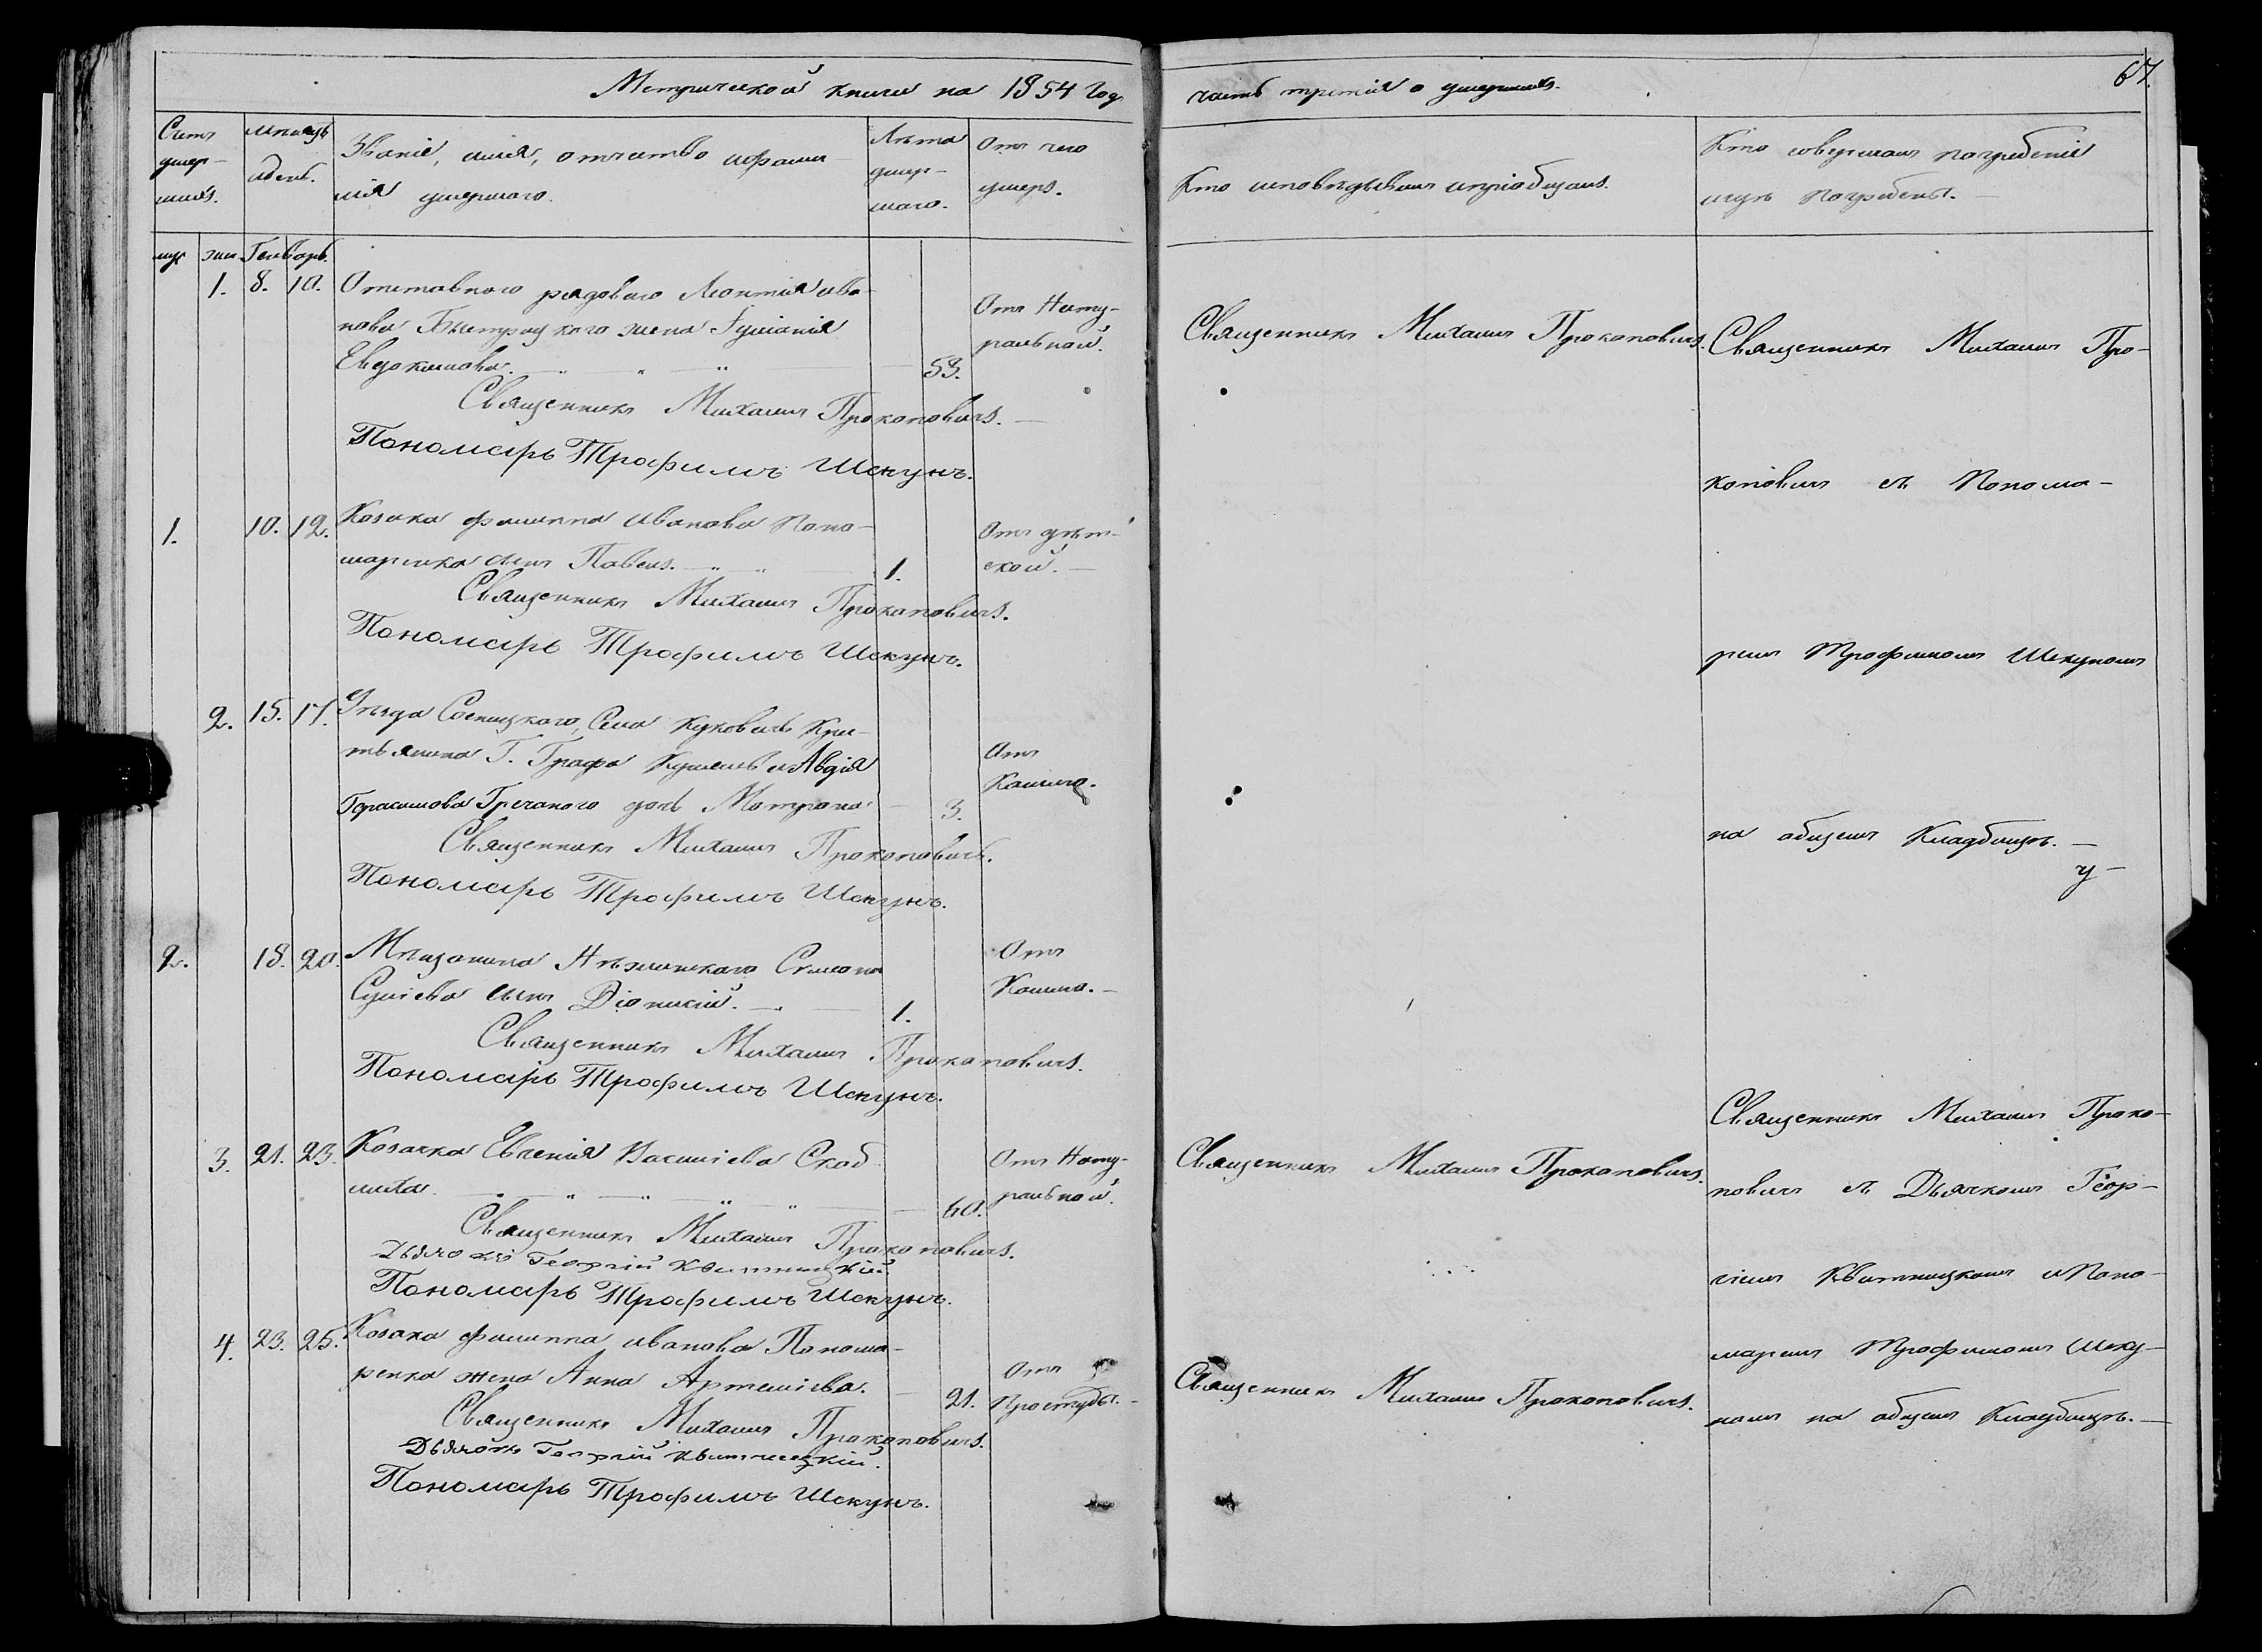 Метрической книги на 1854 годъ
часть третія о умершихъ.
67.
Счетъ умер-шихъ.
Мѣсяцъ и день.
Званіе, имя, отчество и фами-
лія умершаго.
Лѣта умер-шаго.
Отъ чего умеръ.
Кто исповѣдывалъ и пріобщалъ.
Кто совершалъ погребеніе
и гдѣ погребены.
муж жен Генварь.
1. 8. 10. Отставного рядоваго Леонтія Ива-
нова жена Іуліанія
Евдокимова. 53.
Отъ Нату-
ральной.
Священникъ Михаилъ Прокоповичъ.
Пономарь Трофимъ Шекунъ.
Священникъ Михаилъ Прокоповичъ.
Священникъ Михаилъ Про-
коповичъ съ Понома-
ремъ Трофимомъ Шекуномъ
на общемъ Кладбищѣ.
1. 10. 12. Козака Филиппа Иванова Поно-
маренка сынъ Павелъ. 1.
Отъ дѣт-
ской.
Священникъ Михаилъ Прокоповичъ.
Пономарь Трофимъ Шекунъ.
2. 15. 17. Уѣзда Сосницкаго, Села Куковичъ Кре-
стьянина Г. Графа Авдія
Герасимова Гречаного дочь Матрона 3.
Отъ
Кашля.
Священникъ Михаилъ Прокоповичъ.
Пономарь Трофимъ Шекунъ.
2. 18. 20. Мѣщанина Нѣжинскаго Симеона
сынъ Діонисій. 1.
Отъ
Кашля.
Священникъ Михаилъ Прокоповичъ.
Пономарь Трофимъ Шекунъ.
3. 21. 23. Козачка Евгенія Василіева
60.
Отъ Нату-
ральной.
Священникъ Михаилъ Прокоповичъ.
Дьячокъ Георгій Квитницкій.
Пономарь Трофимъ Шекунъ.
Священникъ Михаилъ Прокоповичъ.
Священникъ Михаилъ Проко-
повичъ съ Дьячкомъ Геор-
гіемъ Квитницкимъ и Поно-
маремъ Трофимомъ Шеку-
номъ на общемъ Кладбищѣ.
4. 23. 25. Козака Филиппа Иванова Понома-
ренка жена Анна Артеміева. 21.
Отъ
Простуды.
Священникъ Михаилъ Прокоповичъ.
Дьячокъ Георгій Квитницкій.
Пономарь Трофимъ Шекунъ.
Священникъ Михаилъ Прокоповичъ.